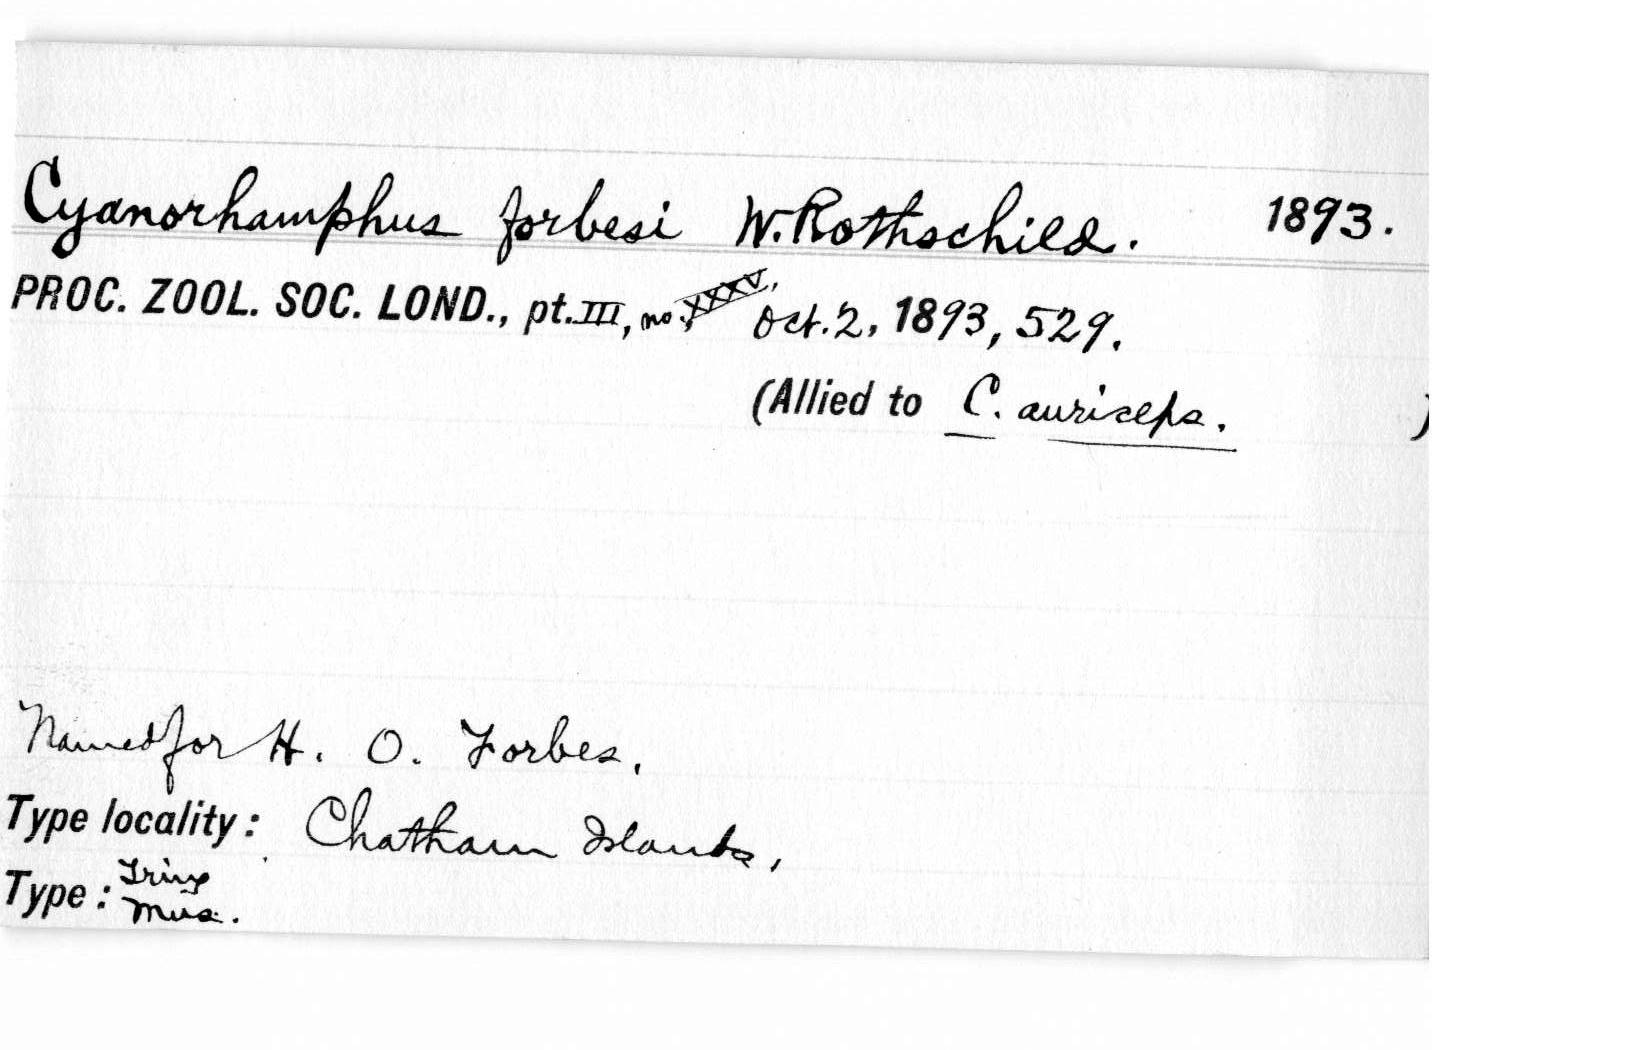 Cyanorhamphus forbesi W. Rothschild. 1893.
PROC. ZOOL. SOC. LOND., pt. III, no. XXXV, Oct. 2, 1893, 529.
(Allied to C. auriceps. )
Named for H. O. Forbes.
Type locality: Chatham Islands.
Type: Tring
Mus.